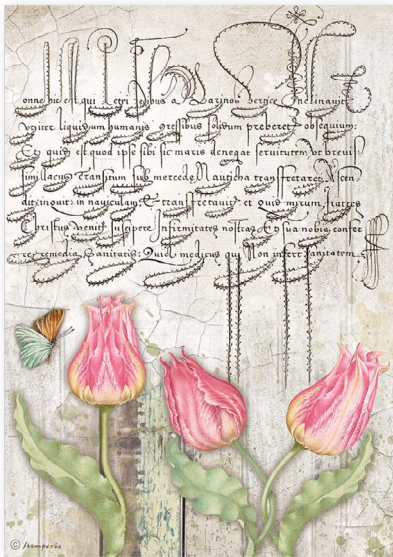 onne hic est qui Petri pedibus a Marinos Vertice Inclinavit
Vt iter liquidum humanis gressibus solidum preberet obsequium:
Et quid est quod ipse sibi sic maris denegat seruiturem Vt breuis
simi lacus transitum sub mercede Nautica transfretaret. Ascen
dit inquit in nauiculam Et transfretauit et Quid mirum fratres
Christus Venit suscipere Infirmitates nostras Et sua nobis confer
re remedia Sanitatis: Quia medicus qui Non infert sanitatem
© Stamperia